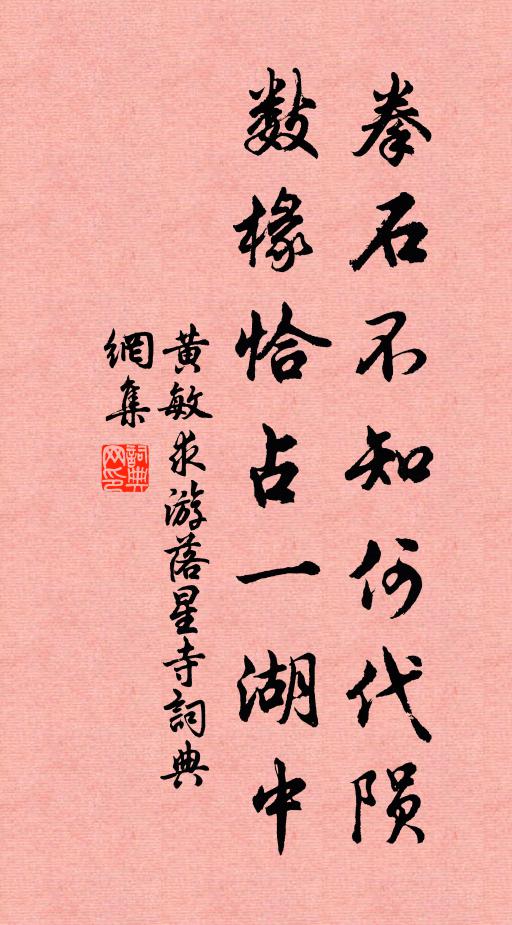 拳石不知何代陨
数椽恰占一湖中
黄敏求游落星寺詞典
網集
詞典网印